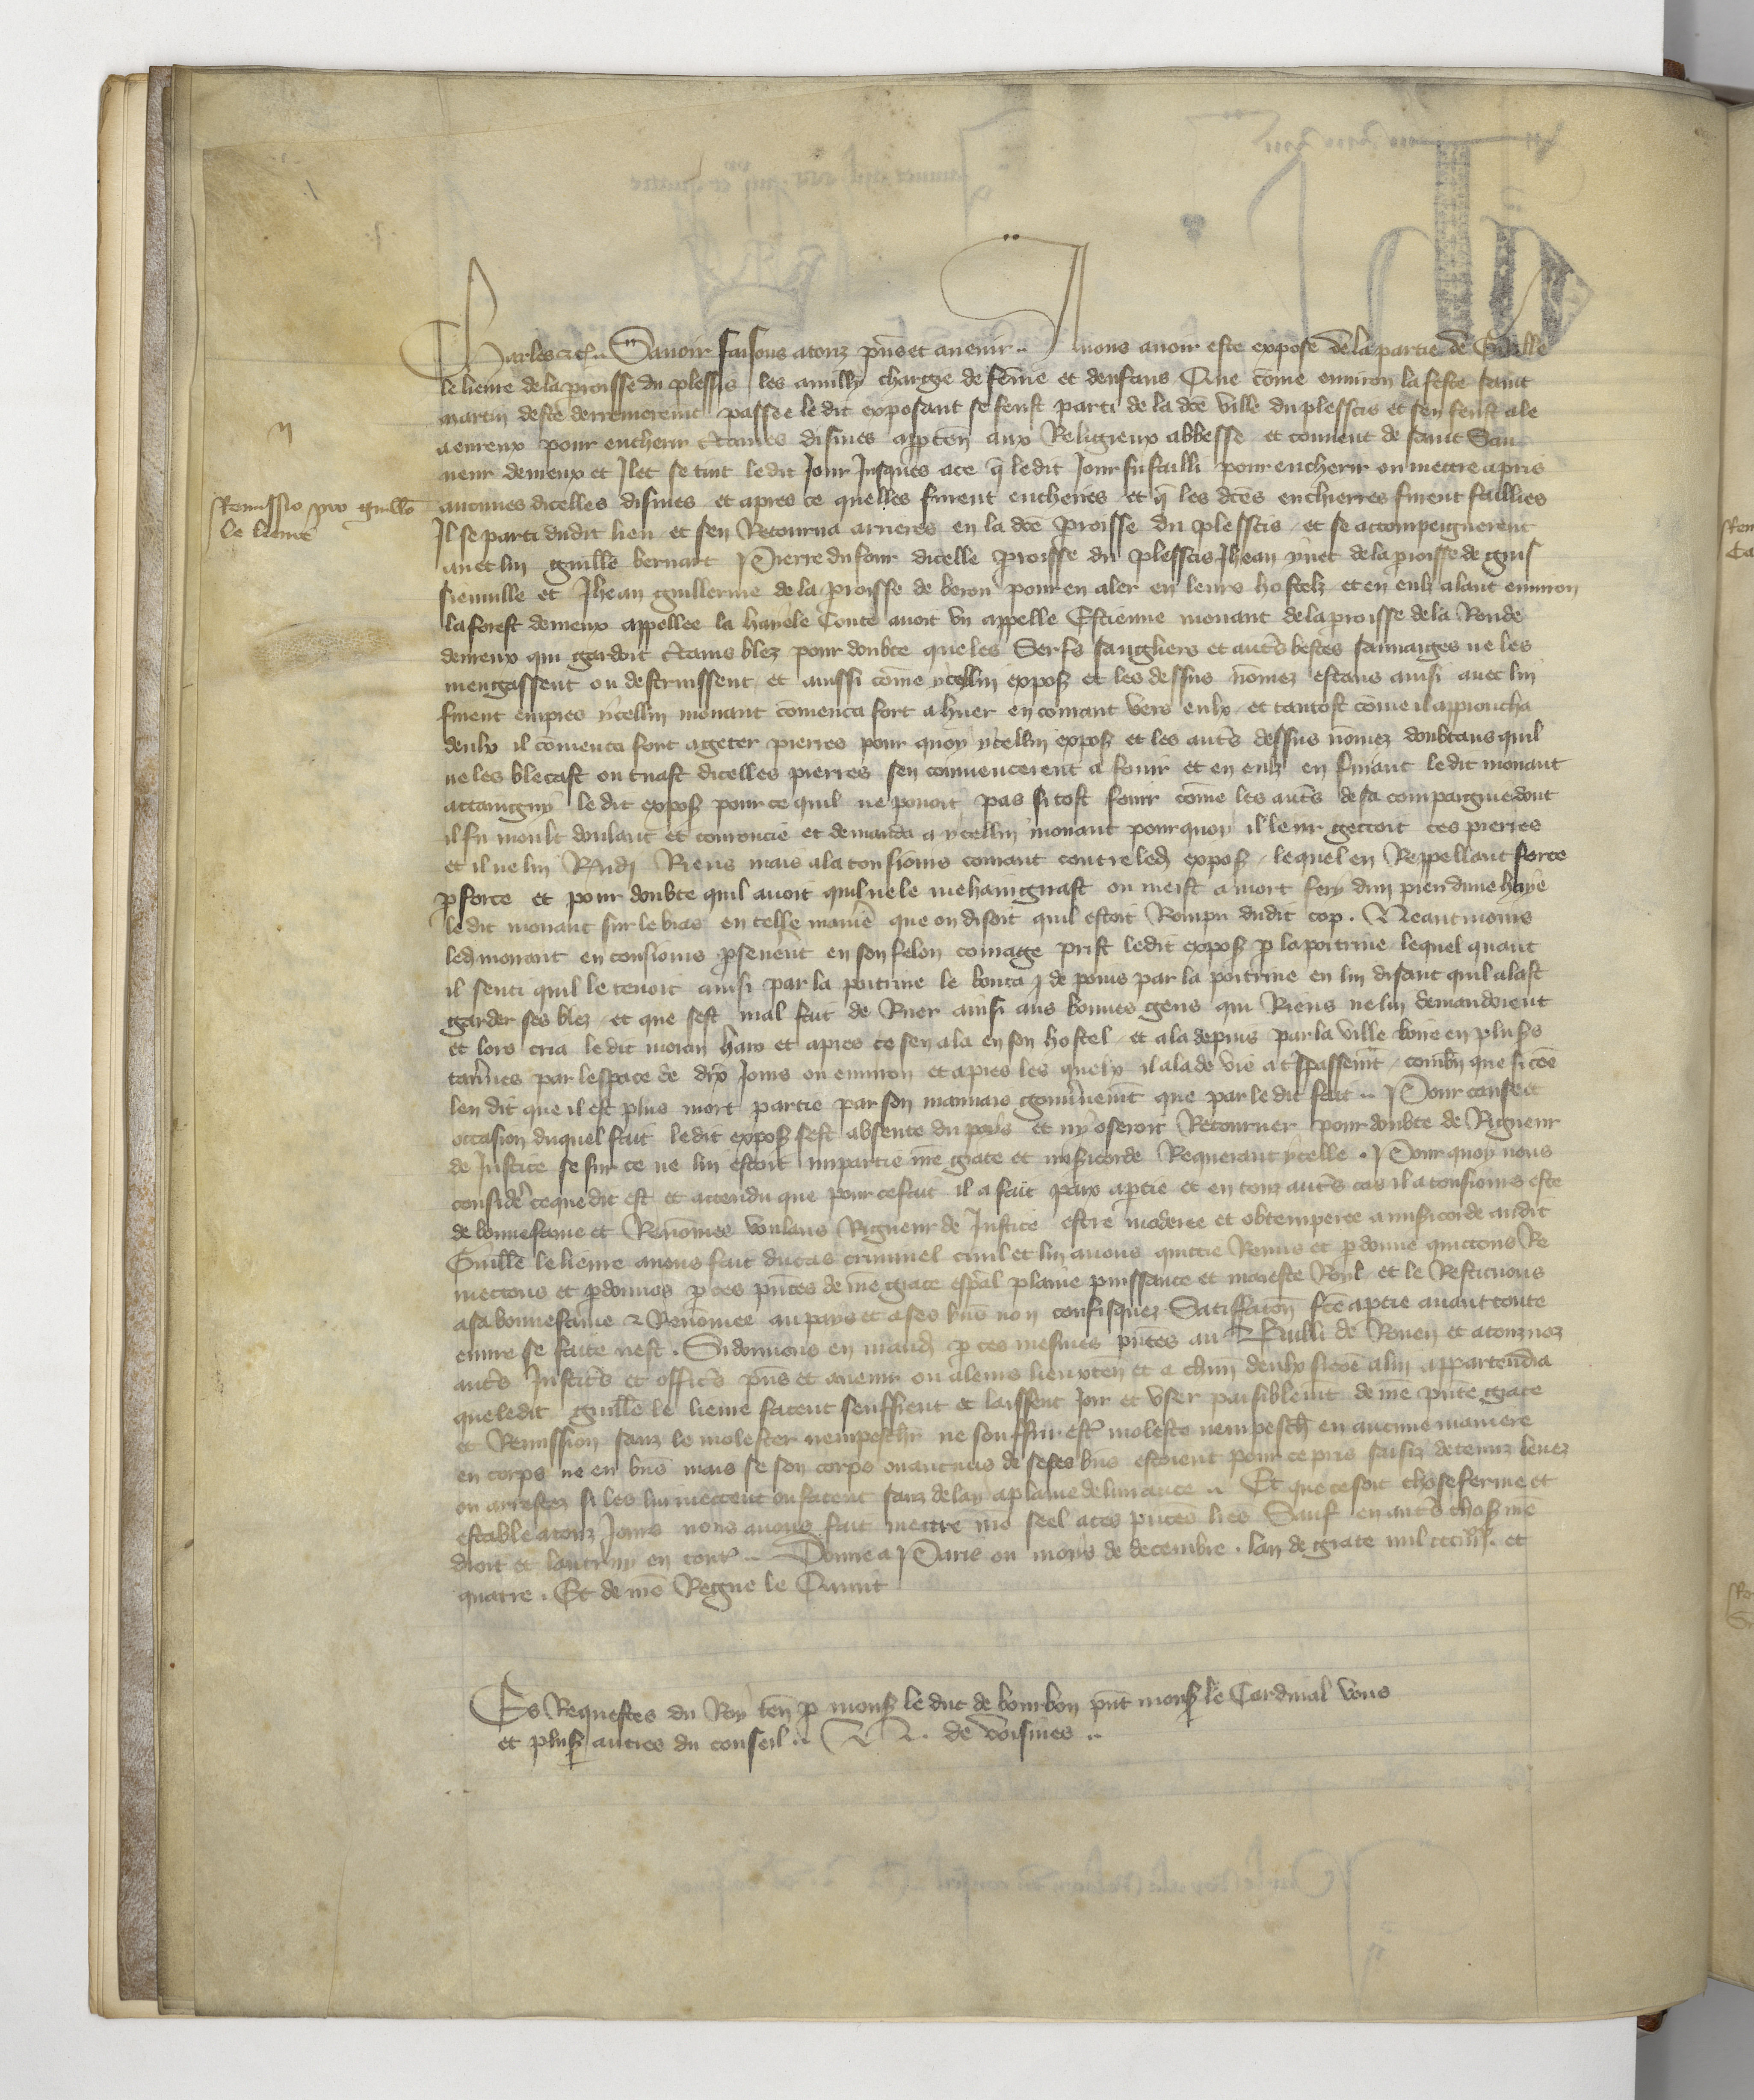 n
Remissio pro guillo
le lieure
Charles etc. Savoir faisons a touz pñs et avenir. A nous avoir este expose de la partie de Guille
le lieure de la proisse du plesseis les auilly charge de feme et denfans Que cōme environ la feste saint
martin deste derrenierement passee le dit exposant se feust parti de la dcē ville du plesseis et sen feust ale
a evreux pour encherir ctaines disines apptēn aux Religieux abbesse et couvent de saint Sau
veur devreux et Ilec se tint le dit Jour Jusques a ce q̄ le dit Jour fu failli pour encherir ou mectre a pris
aucunes dicelles disines et apres ce quelles furent encheries et q̄ les dcēs enchierres furent faillies
Il se parti dudit lieu et sen Retourna arrieres en la dcē proisse du plesseis et se accompeignerent
avec lui guille bernart Pierre du four dicelle proisse du plesseis Jhean yvet de la proisse de guis
sienville et Jhean guillerme de la proisse de beron pour en aler en leurs hostelz et en eulz alant environ
la forest devreux appellee la haye le Conte avoit un appelle Estienne morant de la proisse de la Ronde
devreux qui gardoit ctains blez pour doubte que les Serfs sangliers et autrs bestes sauvaiges ne les
mengassent ou destruissent et aussi cōme ycellui expos et les dessus nōmez estans ainsi avec lui
furent empres ycellui morant cōmenca fort a huer en courant vers eulx et tantost cōme il approucha
deulx il cōmenca fort a geter pierres pour quoy ycellui expos et les autrs dessus nōmez doubtans quil
ne les blecast ou tuast dicelles pierres sen commencerent a fouir et en eulz en fuiant le dit morant
actaingny le dit expos pour ce quil ne povoit pas si tost fouir cōme les autrs de sa compaignie dont
il fu moult doulant et couroucie et demanda a ycellui morant pour quoy il leur gectoit ces pierres
et il ne lui Rñdi Riens mais a la tousiours courant contre led expos lequel en Reppellant force
p force et pour doubte quil avoit quil ne le mehaingnast ou meist a mort fery dun pieu dune haye
le dit morant sur le bras en telle manie que on disoit quil estoit Rompu dudit cop. Neantmoins
led morant en tousiours pseverēt en son felon courage prist ledit expos p la poitrine lequel quant
il senti quil le tenoit ainsi par la poitrine le bouta de poins par la poitrine en lui disant quil alast
garder ses blez et que cest mal fait de Ruer ainsi aus bonnes gens qui Riens ne lui demandoient
et lors cria le dit moran haro et apres ce sen ala en son hostel et ala depuis par la ville boire en plusrs
tavernes par lespace de dix Jours ou environ et apres les quelx il ala de vie a trspassemt combn que si cōe
len dit que il est plus mort partie par son mauvais gouvnemt que par le dit fait. Pour cause et
occasion duquel fait le dit expos sest absente du pays et ny oseroit Retourner pour doubte de Rigueur
de Justice se sur ce ne lui estoit impartie nre grace et misicorde Requerant ycelle. Pour quoy nous
considere ce que dit est et attendu que pour ce fait il a fait paix a ptie et en touz autrs cas il a tousiours este
de bonne fame et Renōmee voulans Rigueur de Justice estre moderee et obtemperee a misicorde audit
Guille le lieure avons fait ou cas criminel civil et lui avons quicte Remis et pdonne quictons Re
mectons et pdonnos p ces pñtes de nre grace espal plaine puissance et maieste Royl et le Restituons
a sa bonne fame et Renōmee au pays et a ses bñs non confisquez Satiffacon fcē a ptie avant toute
euvre se faite nest. Si donnons en mand p ces mesmes pñtes au Bailli de Rouen et a touz noz
autrs Justicrs et officrs pñs et avenir ou a leurs lieuxtēn et a chūn deulx si cōe a lui appartendra
que ledit guille le lieure facent seuffrent et laissent Joir et user paisiblemt de nre pñte grace
et Remission sanz le molester nempeschr ne souffrir estr moleste nempesch en aucune maniere
en corps ne en bñs mais se son corps ou aucuns de ses bñs estoient pour ce pris saisiz detenuz levez
ou arrestez si les lui mectent ou facent sanz delay a plaine delivrance. Et que ce soit chose ferme et
estable a touz Jours nous avons fait mectre nre seel a ces pñtes lres Sauf en autrs choses nre
droit et lautruy en toutes. Donne a Paris ou mois de decembre. lan de grace mil ccc iiiixx. et
quatre. Et de nre Regne le Quint
Es Requestes du Roy tēn p mons le duc de bourbon pñt mons le Cardinal vous
et plus autres du conseil. N. de voisines.